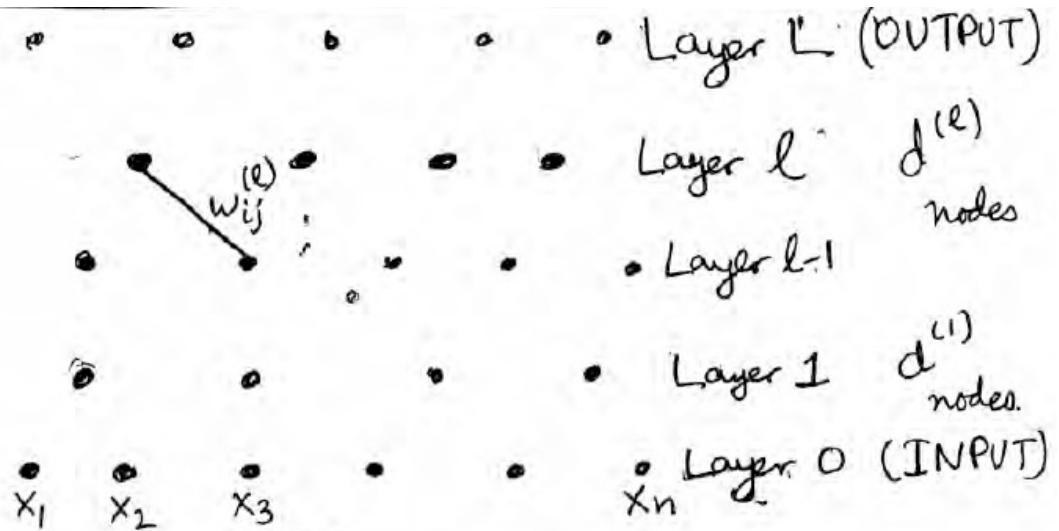 Layer L (OUTPUT)
Layer l d^(l)
nodes
w_ij^(l)
Layer l-1
Layer 1 d^(1)
nodes.
Layer 0 (INPUT)
x₁ x₂ x₃ xₙ